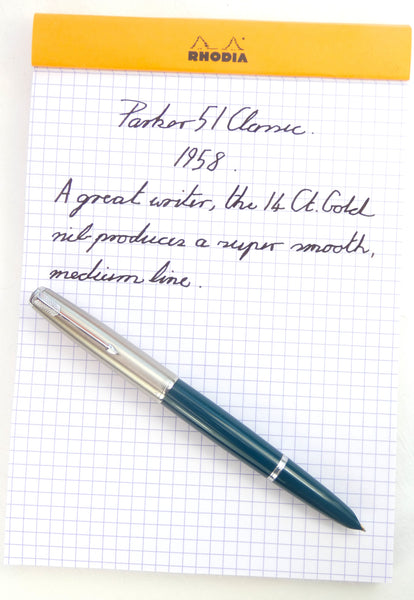 RHODIA
Parker 51 Classic.
1958.
A great writer, the 14 Ct. Gold
nib produces a super smooth,
medium line.